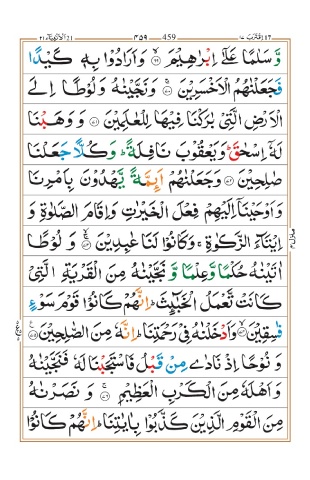 الانبياء ٢١ ٤٥٩ 459 اقترب ١٧
وَّسَلٰمًا عَلٰٓى اِبْرٰهِيْمَ ۙ‏ ﴿۶۹﴾ وَاَرَادُوْا بِهٖ كَيْدًا
فَجَعَلْنٰهُمُ الْاَخْسَرِيْنَ ۚ‏ ﴿۷۰﴾ وَنَجَّيْنٰهُ وَلُوْطًا اِلَى
الْاَرْضِ الَّتِيْ بٰرَكْنَا فِيْهَا لِلْعٰلَمِيْنَ ﴿۷۱﴾ وَوَهَبْنَا
لَهٗٓ اِسْحٰقَ ؕ وَيَعْقُوْبَ نَافِلَةً ؕ وَكُلًّا جَعَلْنَا
صٰلِحِيْنَ ﴿۷۲﴾ وَجَعَلْنٰهُمْ اَئِمَّةً يَّهْدُوْنَ بِاَمْرِنَا
وَاَوْحَيْنَآ اِلَيْهِمْ فِعْلَ الْخَيْرٰتِ وَاِقَامَ الصَّلٰوةِ وَ
اِيْتَآءَ الزَّكٰوةِ ۚ وَكَانُوْا لَنَا عٰبِدِيْنَ ۙ ﴿۷۳﴾ وَلُوْطًا
اٰتَيْنٰهُ حُكْمًا وَّعِلْمًا وَّنَجَّيْنٰهُ مِنَ الْقَرْيَةِ الَّتِيْ
كَانَتْ تَّعْمَلُ الْخَبٰٓئِثَ ؕ اِنَّهُمْ كَانُوْا قَوْمَ سَوْءٍ
فٰسِقِيْنَ ۙ ﴿۷۴﴾ وَاَدْخَلْنٰهُ فِيْ رَحْمَتِنَا ؕ اِنَّهٗ مِنَ الصّٰلِحِيْنَ ﴿۷۵﴾
وَنُوْحًا اِذْ نَادٰى مِنْ قَبْلُ فَاسْتَجَبْنَا لَهٗ فَنَجَّيْنٰهُ
وَاَهْلَهٗ مِنَ الْكَرْبِ الْعَظِيْمِ ۚ ﴿۷۶﴾ وَنَصَرْنٰهُ
مِنَ الْقَوْمِ الَّذِيْنَ كَذَّبُوْا بِاٰيٰتِنَا ؕ اِنَّهُمْ كَانُوْا